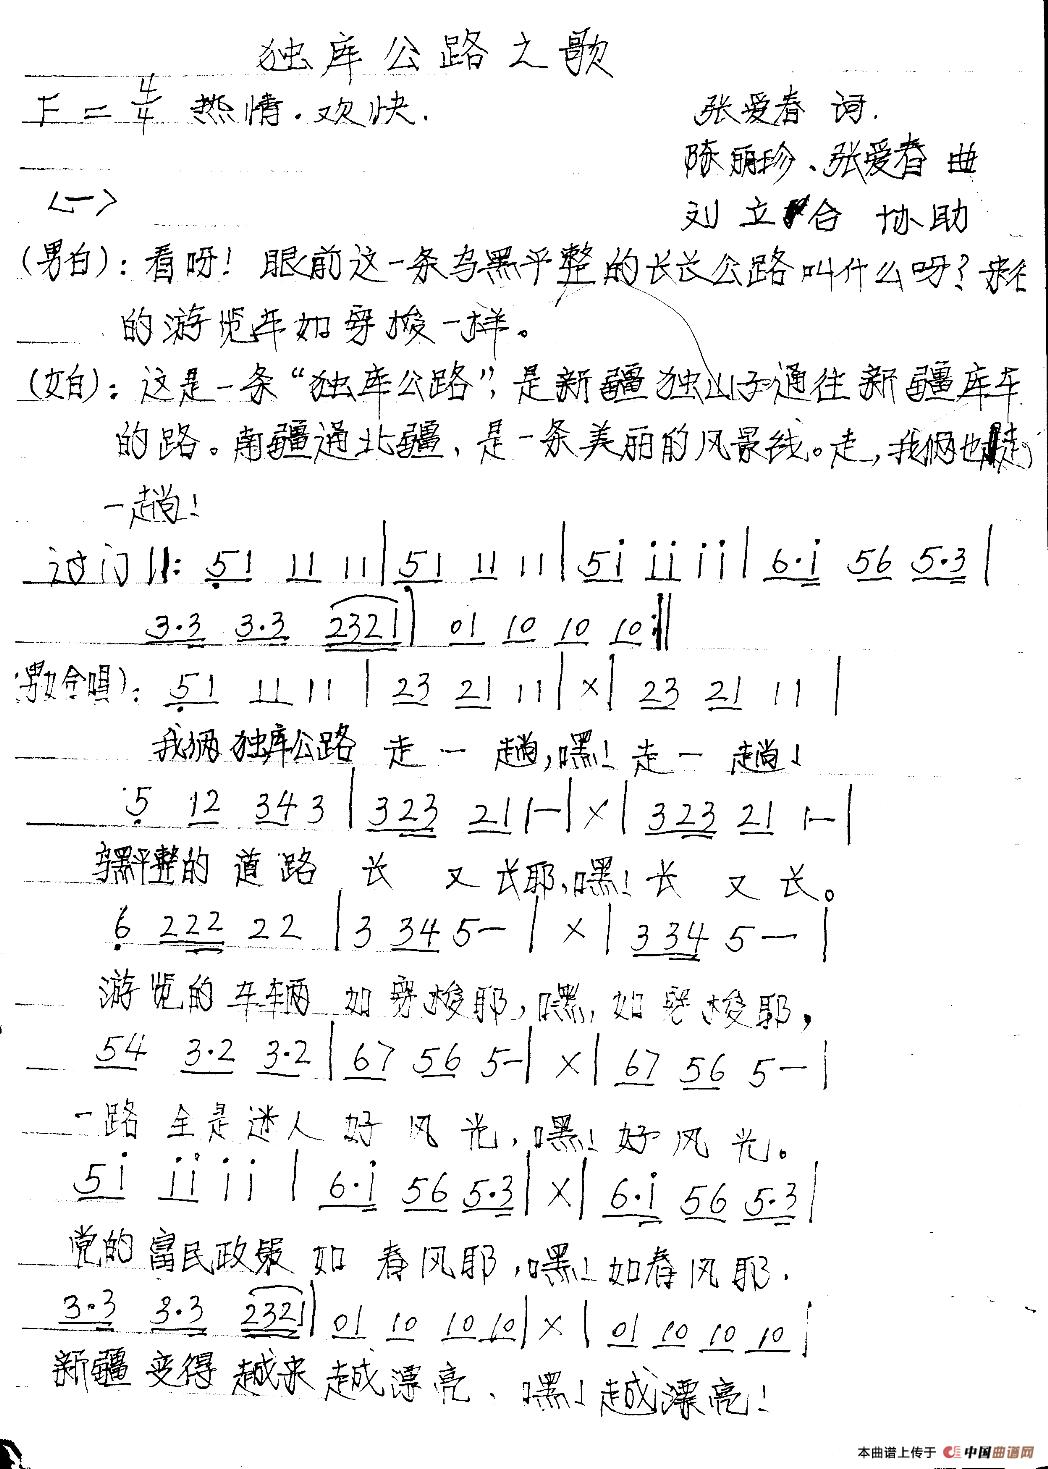 独库公路之歌
F = 4/4 热情.欢快.
张爱春 词.
陈丽珍、张爱春 曲
刘立合 协助
<一>
(男白): 看呀! 眼前这一条乌黑平整的长长公路叫什么呀? 来往
的游览车如穿梭一样。
(女白): 这是一条“独库公路”, 是新疆独山子通往新疆库车
的路。南疆通北疆, 是一条美丽的风景线。走, 我俩也走
一趟!
过门 ‖: 51 11 11 | 51 11 11 | 5i ii ii | 6·i 56 5·3 |
3·3 3·3 2321 | 01 10 10 10 :‖
(男女合唱): 51 11 11 | 23 21 11 | X | 23 21 11 |
我俩独库公路 走一趟, 嘿! 走一趟!
5 12 34 3 | 323 21 1— | X | 323 21 1— |
乌黑平整的道路 长又长耶, 嘿! 长又长。
6 222 22 | 3 34 5— | X | 334 5— |
游览的车辆 如穿梭耶, 嘿, 如穿梭耶,
54 3·2 3·2 | 67 56 5— | X | 67 56 5— |
一路全是迷人好风光, 嘿! 好风光。
5i ii ii | 6·i 56 5·3 | X | 6·i 56 5·3 |
党的富民政策如春风耶, 嘿! 如春风耶.
3·3 3·3 2321 | 01 10 10 10 | X | 01 10 10 10 |
新疆变得越来越漂亮、嘿! 越漂亮!
本曲谱上传于 中国曲谱网